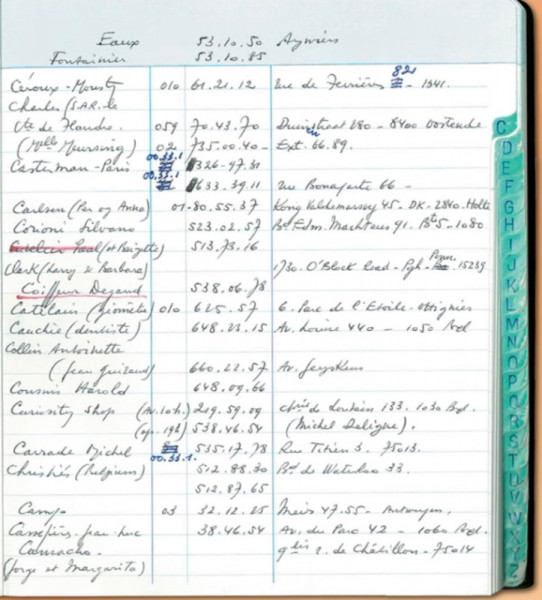 Eaux 53.10.50 Aywiers
Fontainier 53.10.85
Céroux-Mousty 010 61.21.12 rue de Ferrières 82 - 1341.
Charles (S.A.R. le
Cte de Flandre. 059 70.43.70 Duinstraat 180 - 8400 Oostende
(Melle Meursing) 02 735.00.40 - Ext. 66.89.
Casterman - Paris 00.33.1 326-47.31
00.33.1 633.39.11 rue Bonaparte 66 -
Carlsen (Per og Anna) 01-80.55.37 Kong Valdemarsvej 45. DK-2840. Holte
Corioni Silvano 523.02.57 Bd Edm. Machtens 91. Bte 5 - 1080
Paul (et Brigitte) 513.73.16
Clark (Larry & Barbara) 1730. O'Block Road - Pgh - Penn. 15239
Coiffeur Degand 538.06.78
Catelain (géomètre) 010 625.57 6. Parc de l'Etoile. Ottignies
Cauchie (dentiste) 648.23.15 Av. Louise 440 - 1050 Bxl
Collin Antoinette
(Jean Guiraud) 660.22.57 Av.
Cousins Harold 648.09.66
Curiosity Shop (Av. 10h.) 219.59.09 chée de Louvain 133. 1030 Bxl.
(ap. 19h) 538.46.54 (Michel Deligne).
Carrade Michel 00.33.1. 535.17.78 Rue Titien 3. 75013.
Christie's (Belgium) 512.88.30 Bd de Waterloo 33.
512.87.65
Camp 03 32.12.25 Meir 47.55 - Antwerpen.
Casefiers Jean-Luc 38.46.54 Av. du Parc 42 - 1060 Bxl.
Camacho. 9 bis r. de Châtillon - 75014
(Jorge et Margarita)
C
D
E
F
G
H
I
J
K
L
M
N
O
P
Q
R
S
T
U
V
W
X
Y
Z